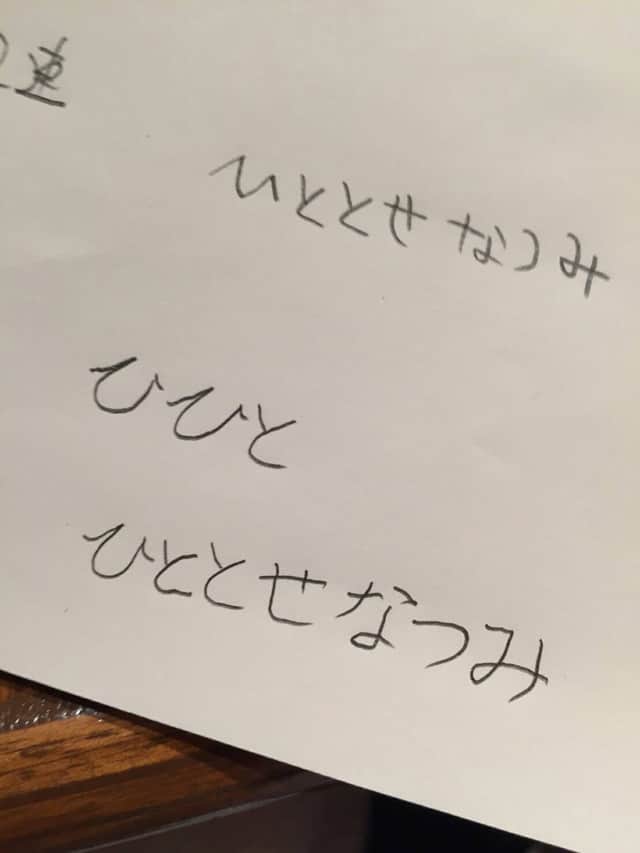 ひととせなつみ
ひひと
ひととせなつみ